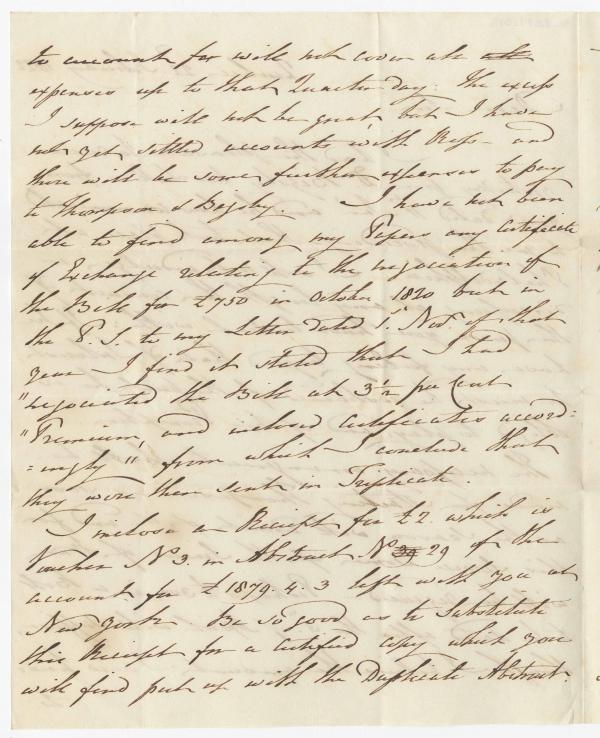 to account for will not cover all the
expenses up to that Quarter day: the excess
I suppose will not be great, but I have
not yet settled accounts with Ross - and
there will be some further expenses to pay
to Thompson & Bigsby. I have not been
able to find among my Papers any Certificate
of Exchange relating to the negociation of
the Bill for £750 in October 1820 but in
the P. S. to my Letter dated 1st Novr. of that
year I find it stated that I had
"negociated the Bill at 3 1/2 per Cent
"Premium, and inclosed Certificates accord=
=ingly", from which I conclude that
they were then sent in Triplicate.
I inclose a Receipt for £2. which is
Voucher No 3. in Abstract No 39 29 of the
account for £1879. 4. 3 left with you at
New York. Be so good as to Substitute
this Receipt for a Certified copy which you
will find put up with the Duplicate Abstract.